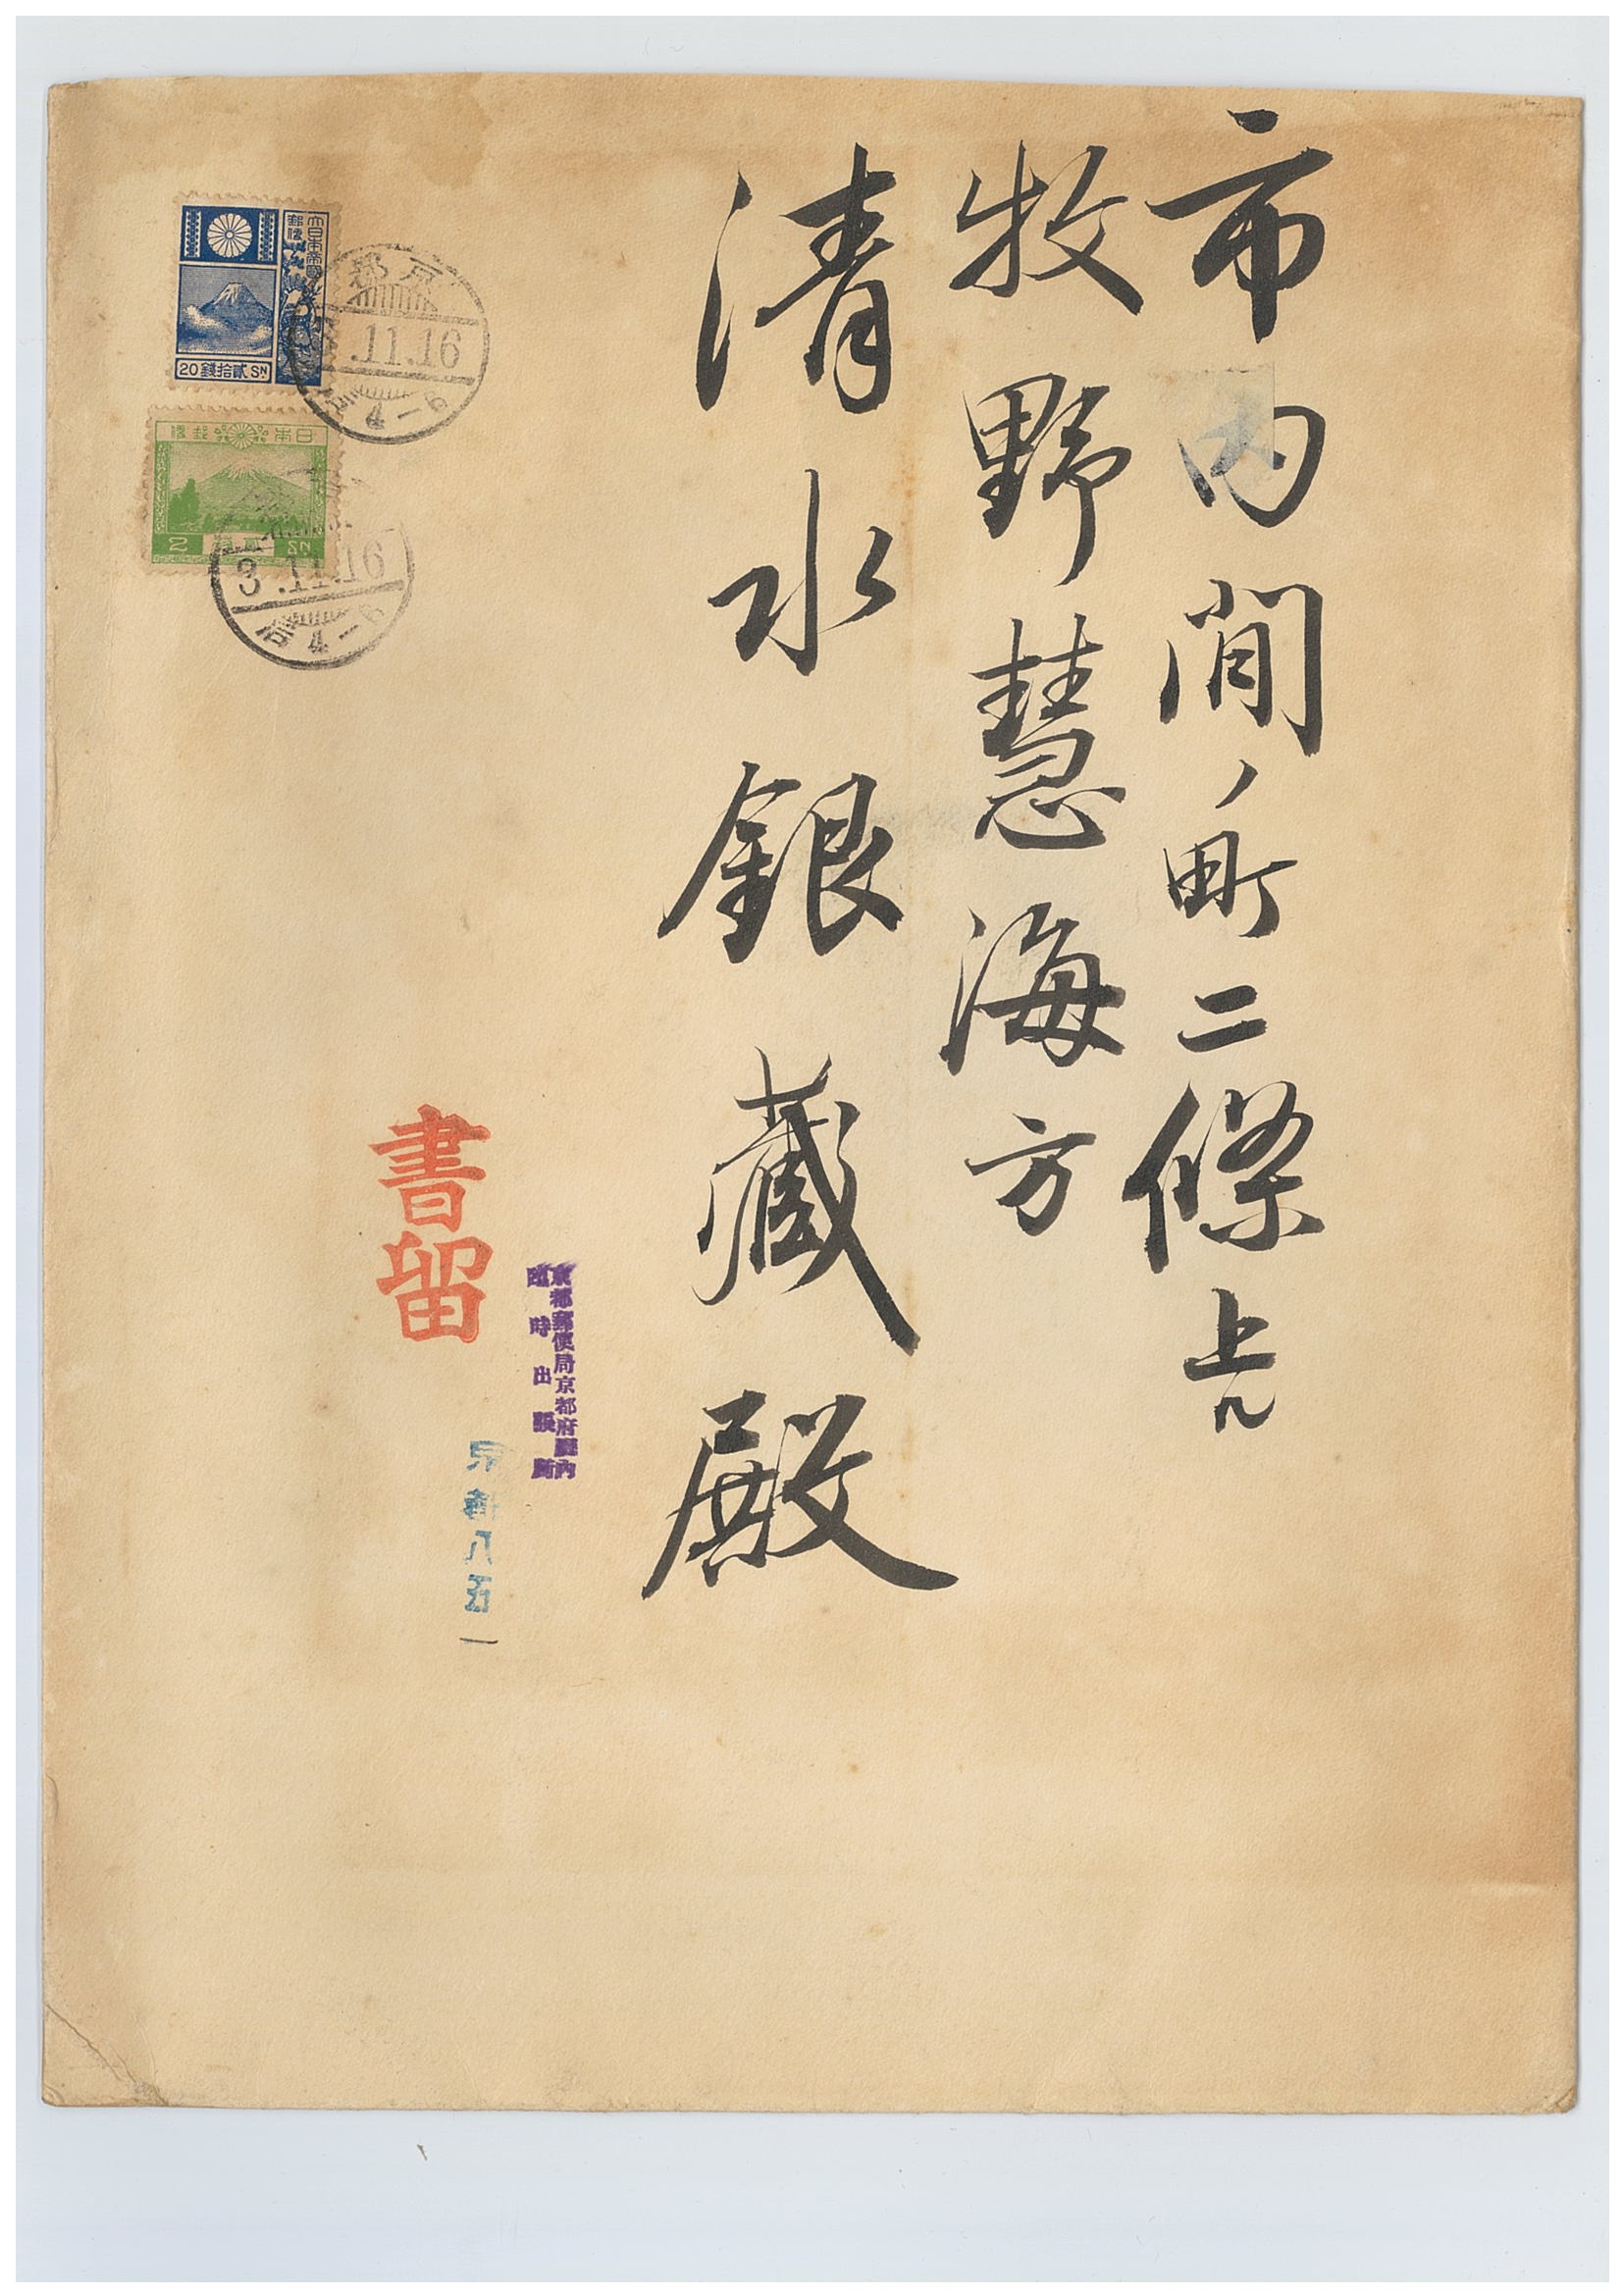 市内間ノ町二條上ル
牧野慧海方
清水銀藏殿
大日本帝國
郵便
20錢拾貳SN
京都
.11.16
日本郵便
2 SN
3.11.16
書留
京都郵便局京都府廳內
臨時出張所
京都八五一